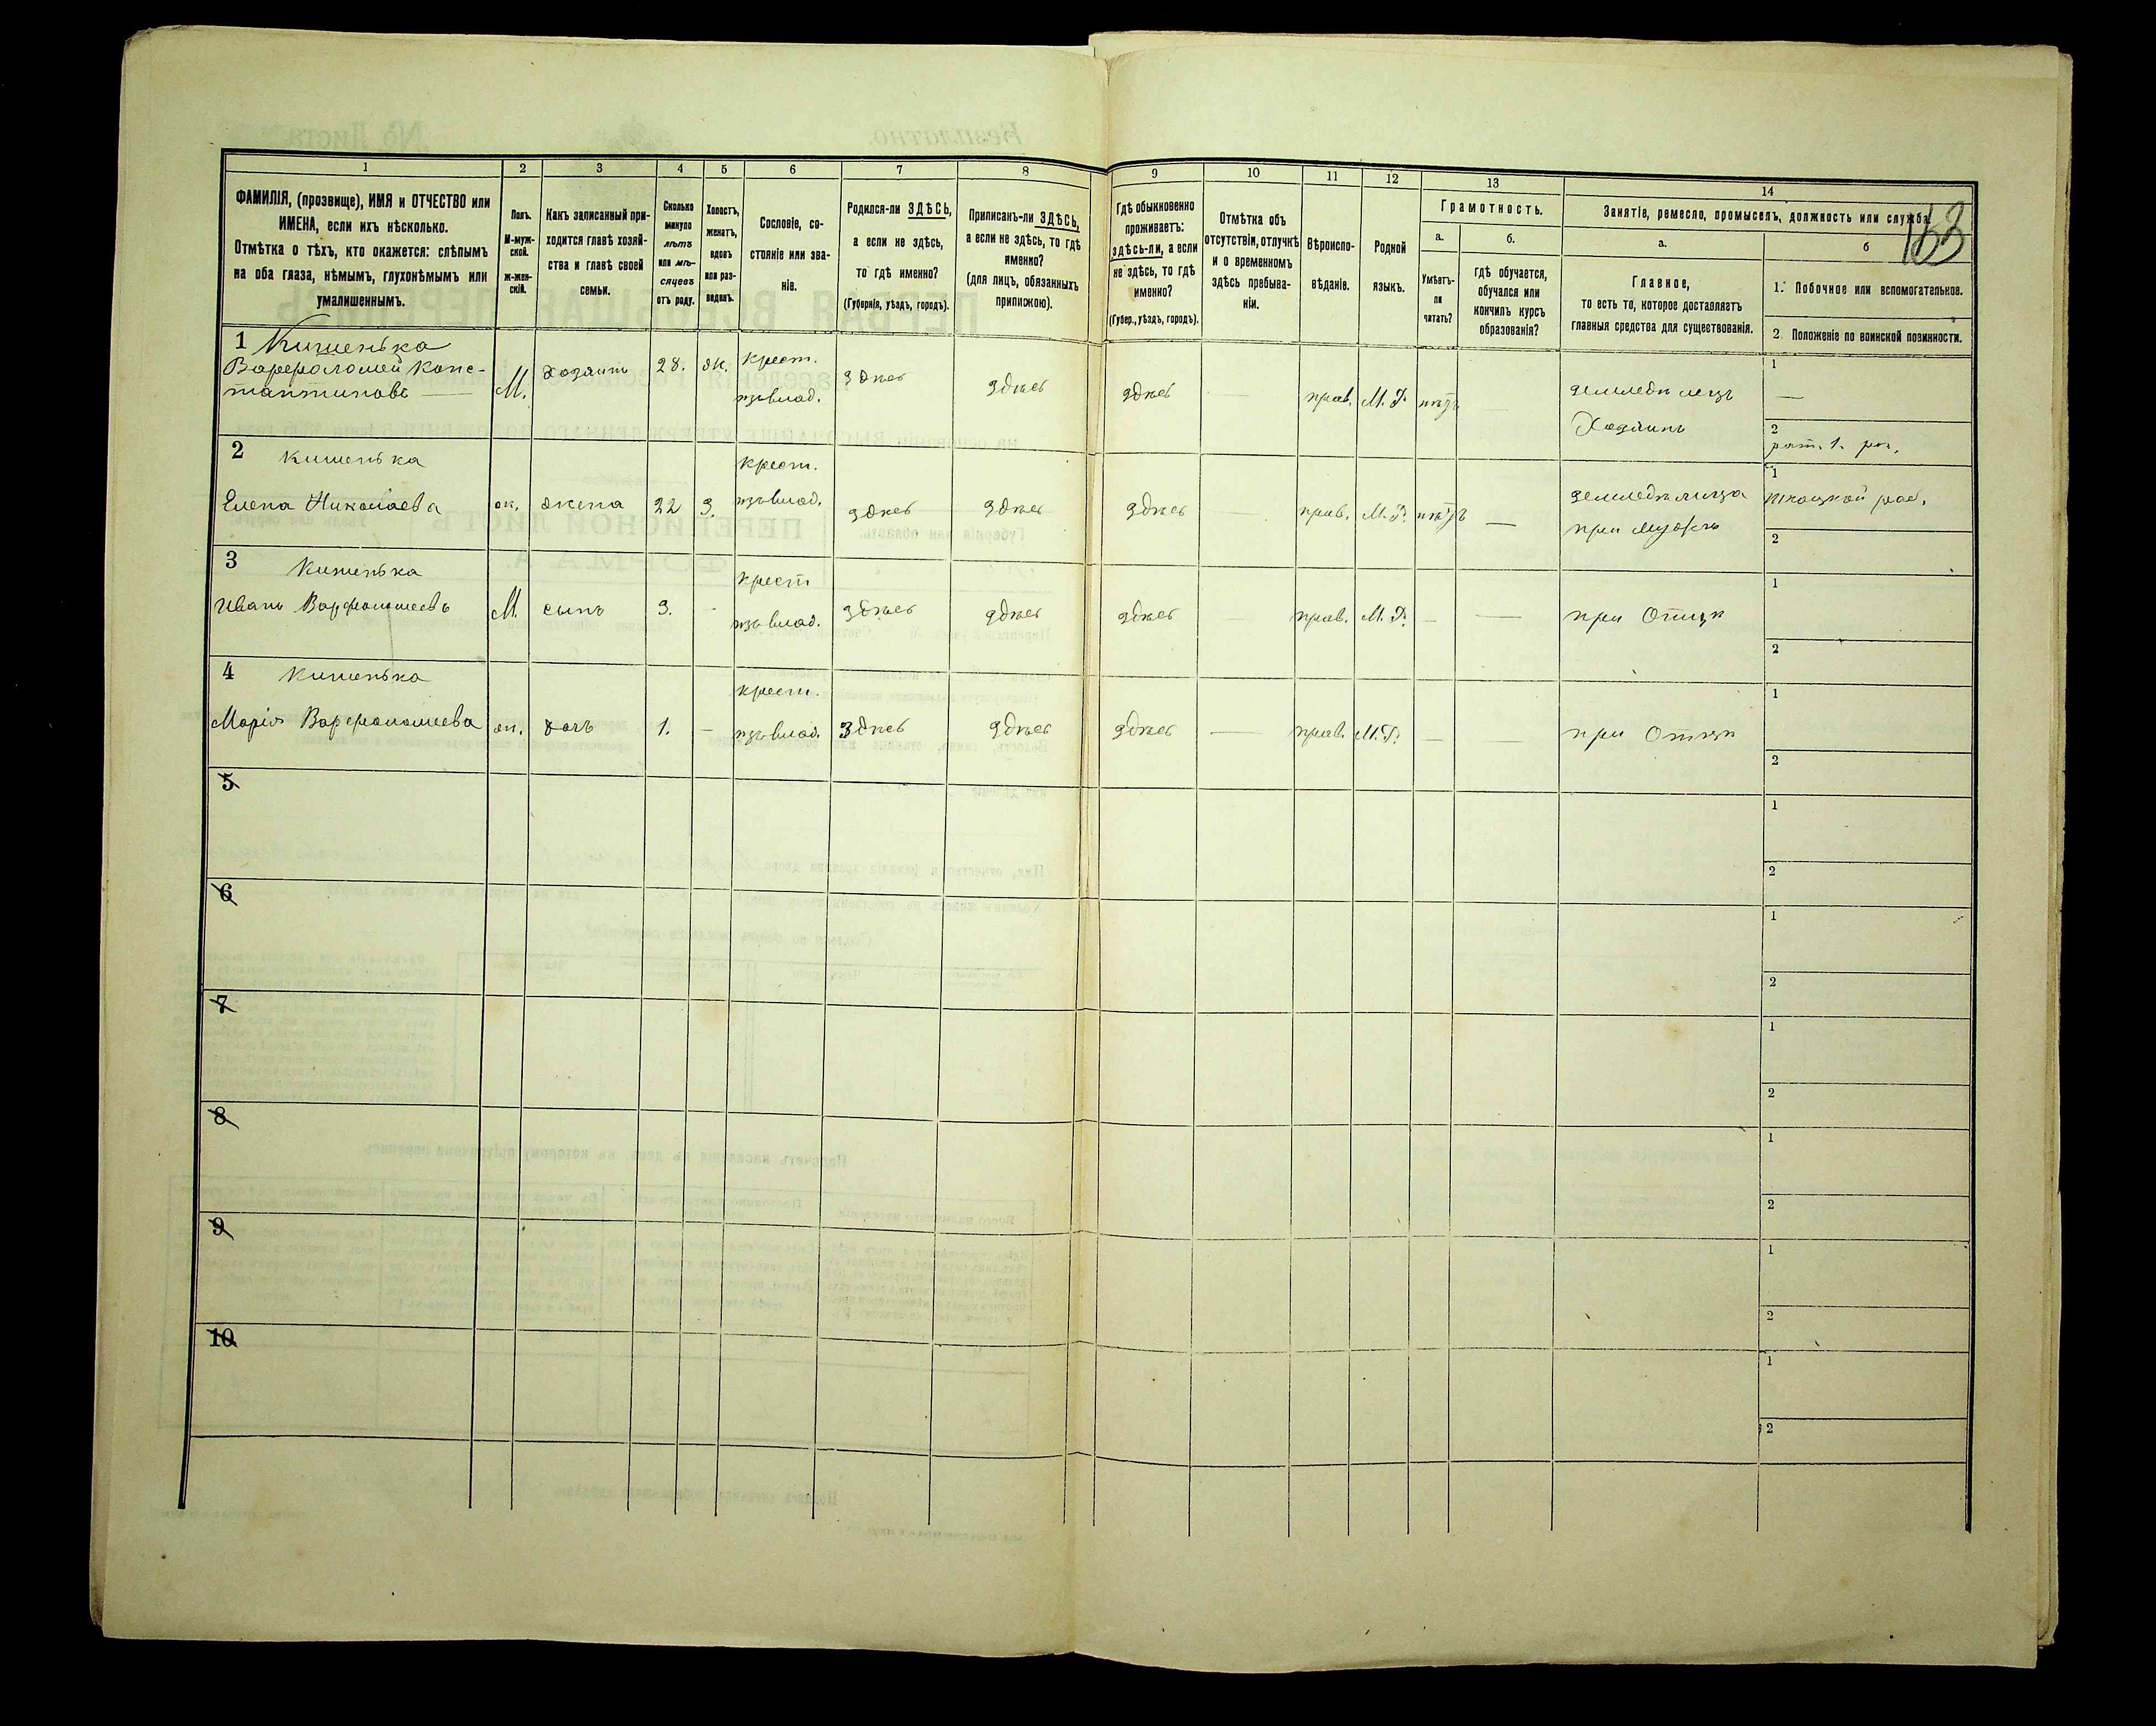 1
2
3
4
5
6
7
8
ФАМИЛІЯ, (прозвище), ИМЯ и ОТЧЕСТВО или
ИМЕНА, если ихъ нѣсколько.
Отмѣтка о тѣхъ, кто окажется: слѣпымъ
на оба глаза, нѣмымъ, глухонѣмымъ или
умалишеннымъ.
Полъ.
М-муж-
ской.
Ж-жен-
скій.
Какъ записанный при-
ходится главѣ хозяй-
ства и главѣ своей
семьи.
Сколько
минуло
лѣтъ
или мѣ-
сяцевъ
отъ роду.
Холостъ,
женатъ,
вдовъ
или раз-
веденъ.
Сословіе, со-
стояніе или зва-
ніе.
Родился-ли ЗДѢСЬ,
а если не здѣсь,
то гдѣ именно?
(Губернія, уѣздъ, городъ).
Приписанъ-ли ЗДѢСЬ,
а если не здѣсь, то гдѣ
именно?
(для лицъ, обязанныхъ
припискою).
9
10
11
12
13
14
Гдѣ обыкновенно
проживаетъ:
здѣсь-ли, а если
не здѣсь, то гдѣ
именно?
(Губер., уѣздъ, городъ).
Отмѣтка объ
отсутствіи, отлучкѣ
и о временномъ
здѣсь пребыва-
ніи.
Вѣроиспо-
вѣданіе.
Родной
языкъ.
Грамотность.
а.
б.
Умѣетъ-
ли
читать?
гдѣ обучается,
обучался или
кончилъ курсъ
образованія?
Занятіе, ремесло, промыселъ, должность или служба.
а.
б
Главное,
то есть то, которое доставляетъ
главныя средства для существованія.
1. Побочное или вспомогательное.
2. Положеніе по воинской повинности.
1 Кишенька
Варфоломей Конс-
тантиновъ
М.
хозяинъ
28.
ж.
крест.
изъ влад.
здѣсь
здѣсь
здѣсь
прав.
М. Р.
нѣтъ
земледѣлецъ
Хозяинъ
1
2
рат. 1. ра.
2 Кишенька
Елена Николаева
ж.
жена
22
З.
крест.
изъ влад.
здѣсь
здѣсь
здѣсь
прав.
М. Р.
нѣтъ
земледѣлица
при мужѣ
1
2
3 Кишенька
Иванъ Варфоломеевъ
М.
сынъ
3.
крест
изъ влад.
здѣсь
здѣсь
здѣсь
прав.
М. Р.
при Отцѣ
1
2
4 Кишенька
Марія Варфоломеева
ж.
дочь
1.
крест.
изъ влад.
здѣсь
здѣсь
здѣсь
прав.
М. Р.
при Отцѣ
1
2
5
1
2
6
1
2
7
1
2
8
1
2
9
1
2
10
1
2